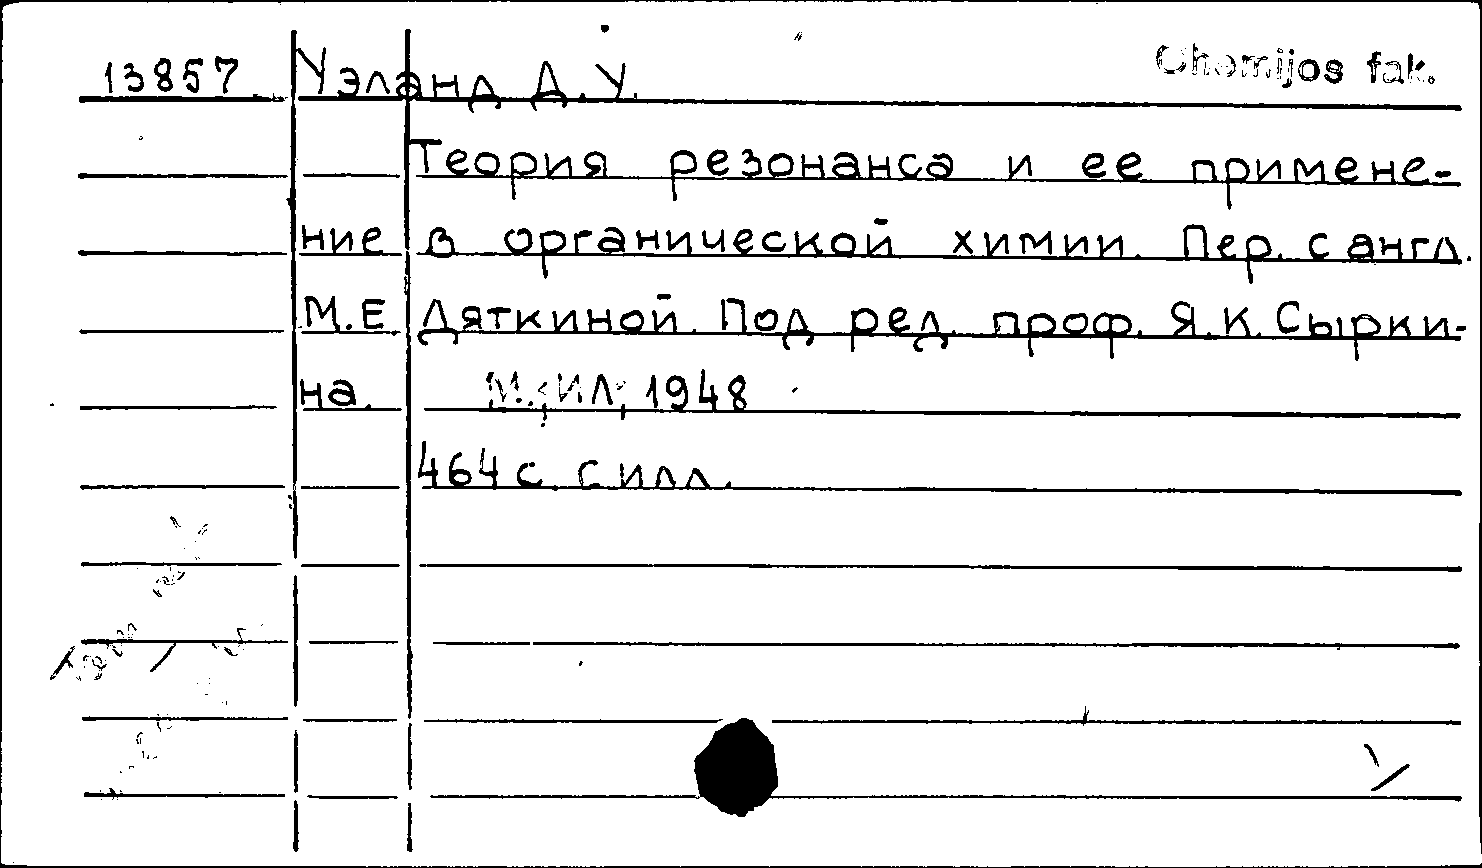 13857 Уэланд Д. У. Chemijos fak.
Теория резонанса и ее примене-
ние в органической химии. Пер. с англ.
М.Е Дяткиной. Под ред. проф. Я.К. Сырки-
на. М., ИЛ, 1948
464 с. с илл.